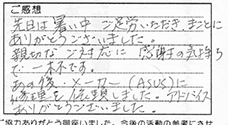 ご感想
先日は暑い中ご足労いただき まことに
ありがとうございました。
親切なご対応に感謝の気持ち
で一杯です。
あの後、メーカー(ASUS)に
修理を依頼しました。アドバイス
ありがとうございました。
ご協力ありがとう御座いました。今後の活動の参考にさせ